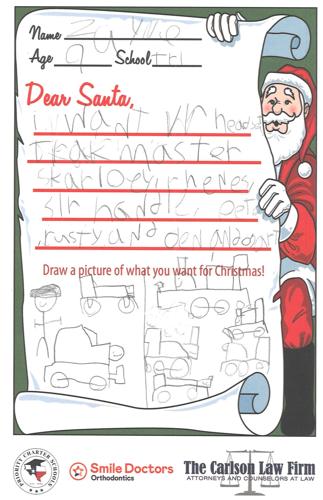 Name Zyllie
Age 9 School Tri
Dear Santa,
i want vr headset
Trakmaster
skarloey, rhenes,
sir handle, Pet
,rusty and
Draw a picture of what you want for Christmas!
PRIORITY CHARTER SCHOOLS
Smile Doctors
Orthodontics
The Carlson Law Firm
ATTORNEYS AND COUNSELORS AT LAW